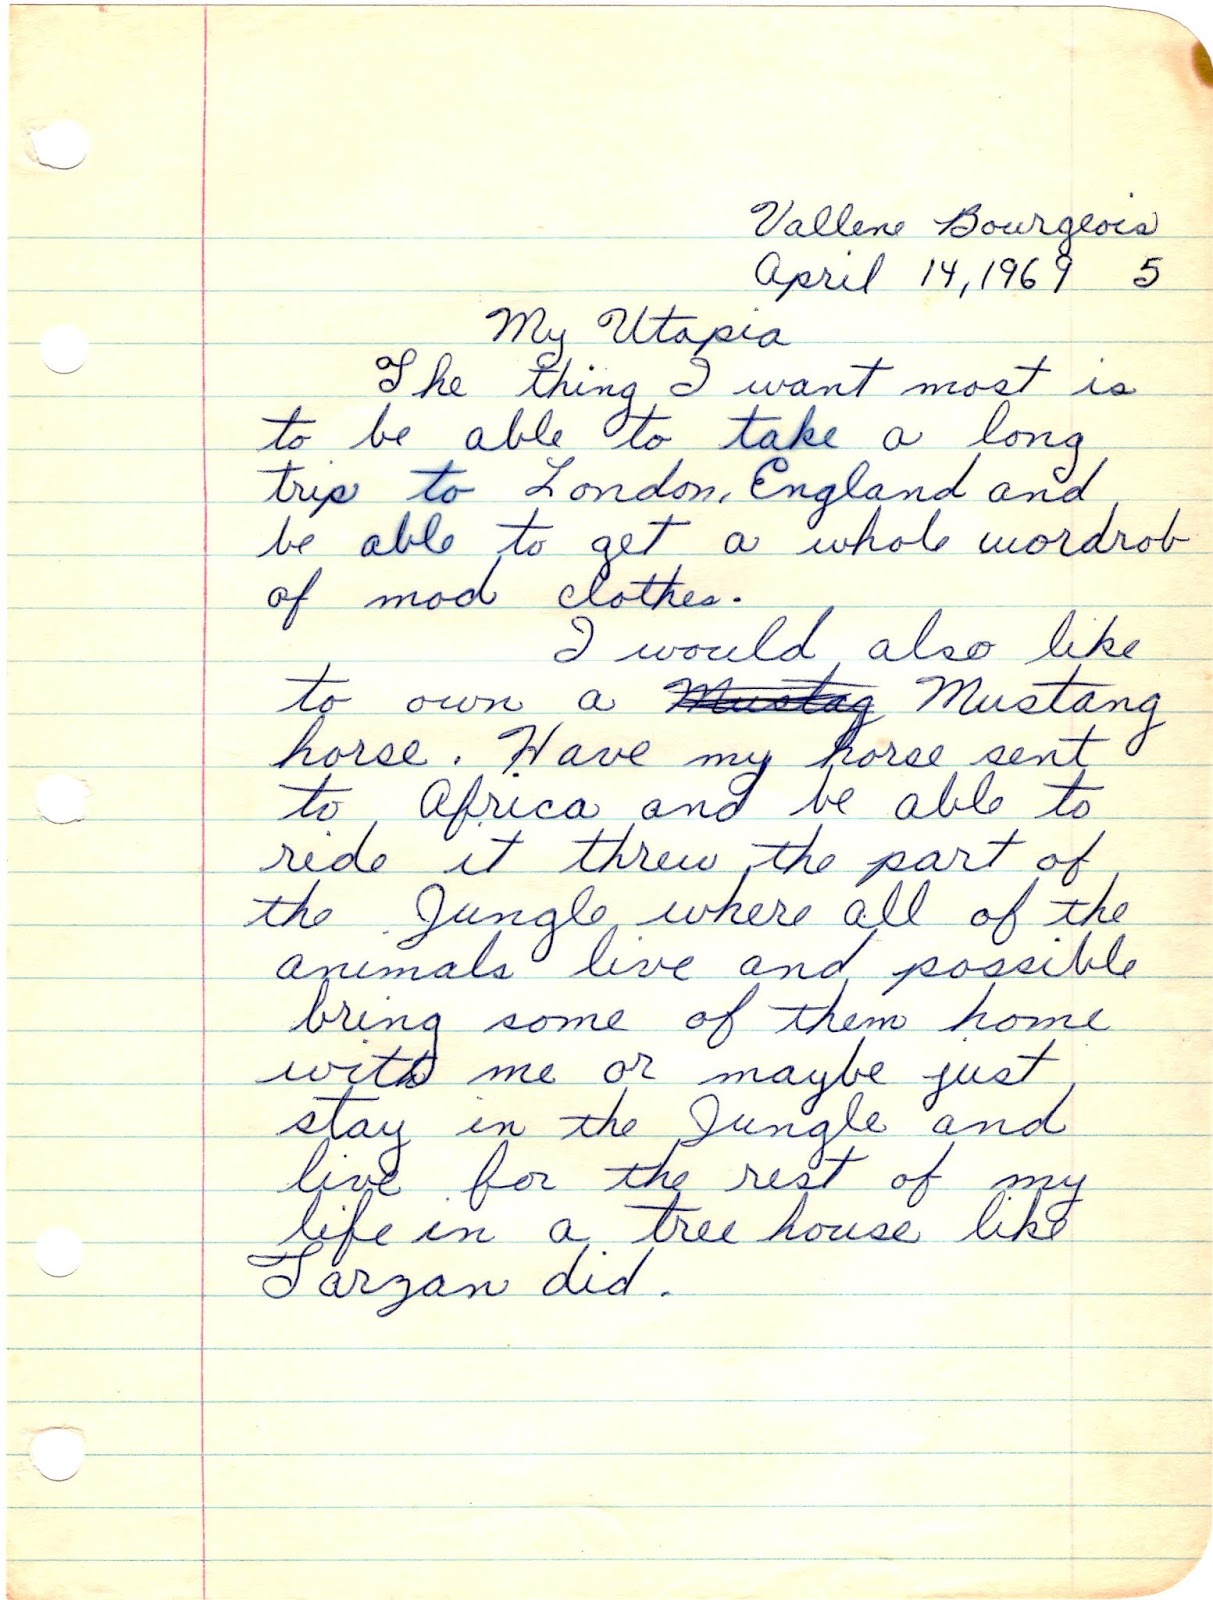 Vallene Bourgeois
April 14, 1969 5
My Utopia
The thing I want most is
to be able to take a long
trip to London, England and
be able to get a whole wordrob
of mod clothes.
I would also like
to own a Mustag Mustang
horse. Have my horse sent
to Africa and be able to
ride it threw the part of
the Jungle where all of the
animals live and possible
bring some of them home
with me or maybe just
stay in the Jungle and
live for the rest of my
life in a tree house like
Tarzan did.